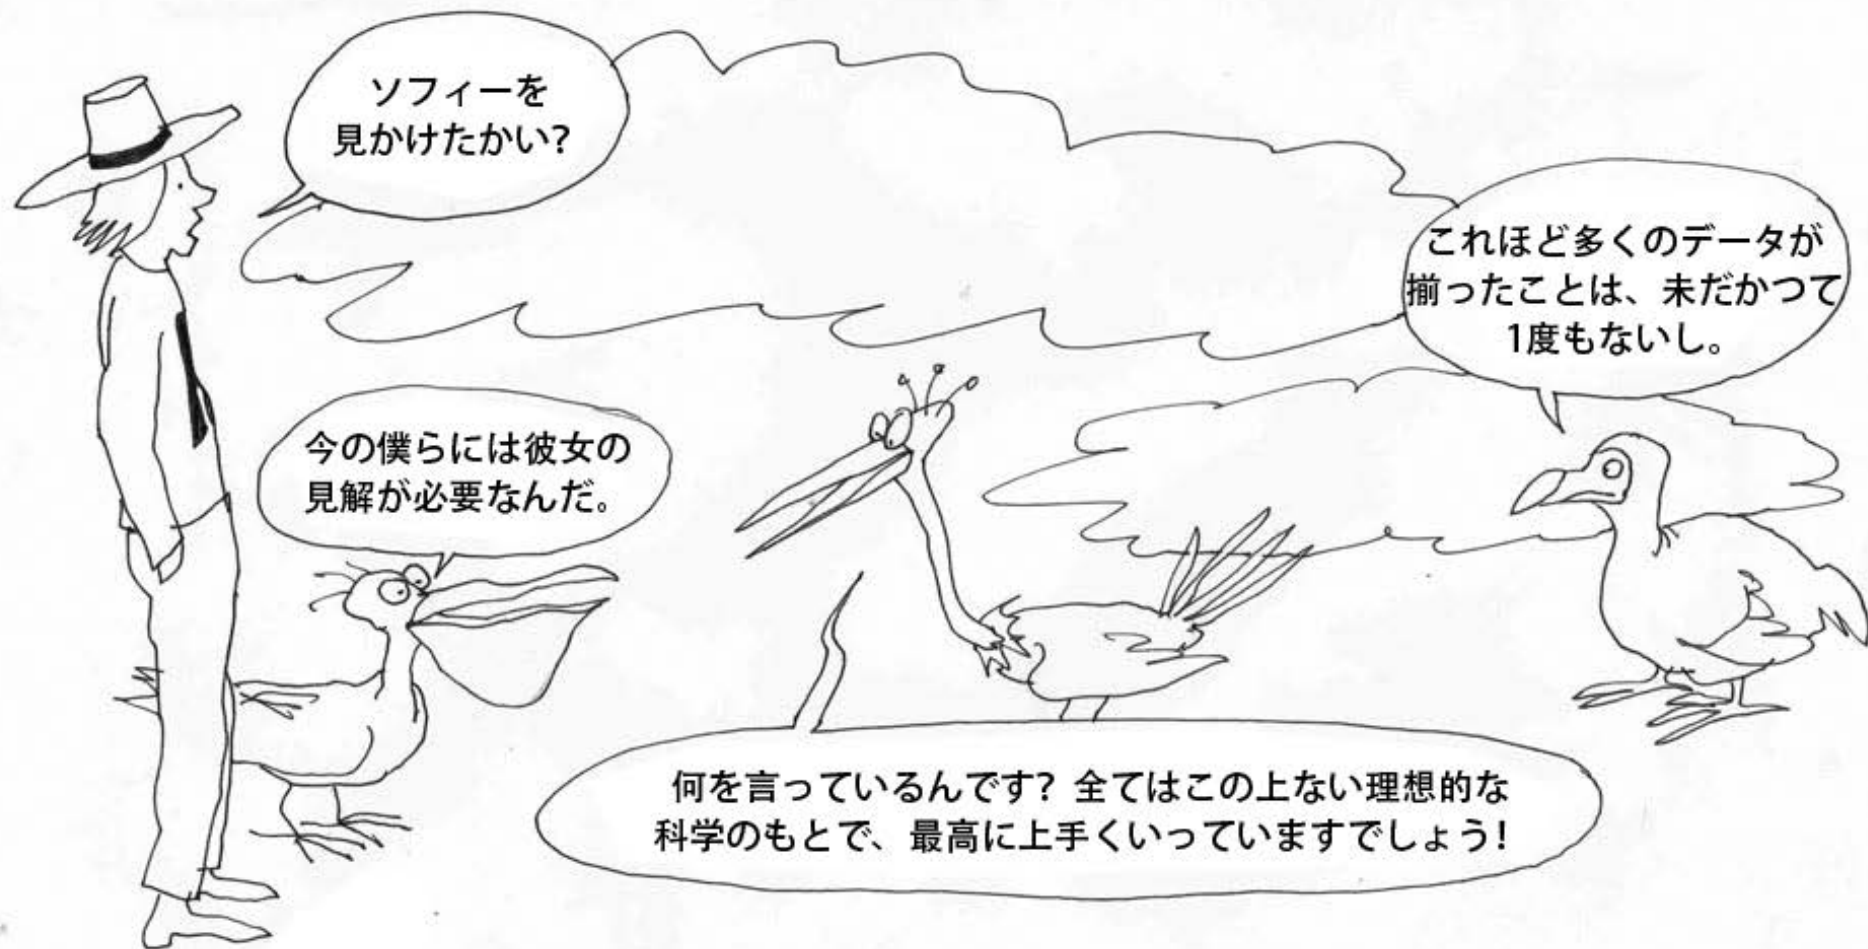 ソフィーを
見かけたかい?
今の僕らには彼女の
見解が必要なんだ。
何を言っているんです? 全てはこの上ない理想的な
科学のもとで、最高に上手くいっていますでしょう!
これほど多くのデータが
揃ったことは、未だかつて
1度もないし。